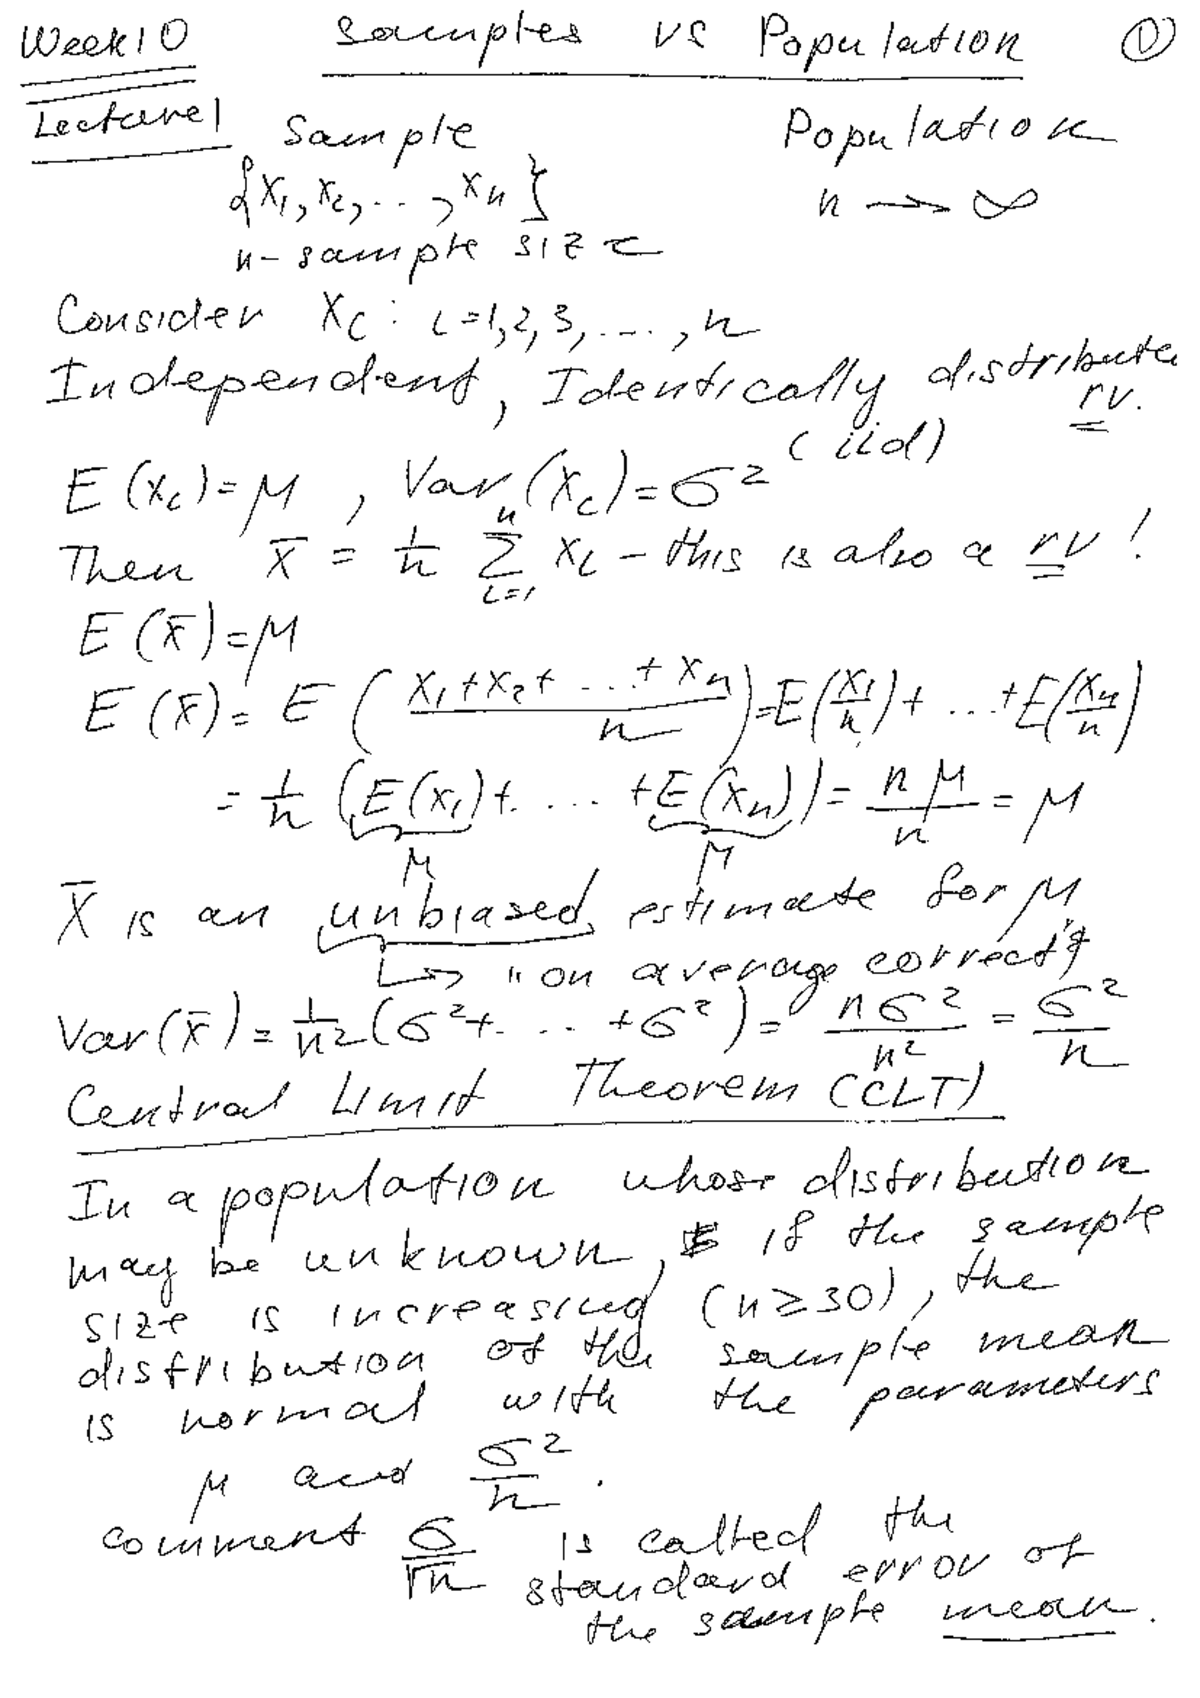 Week 10 Samples vs Population ①
Lecture 1 Sample Population
{x₁, x₂, ..., xₙ} n → ∞
n - sample size
Consider Xᵢ : i=1,2,3,....,n
Independent, Identically distributed rv.
(iid)
E(xᵢ)=μ, Var(xᵢ)=σ²
Then X̄ = 1/n Σᵢ₌₁ⁿ xᵢ - this is also a rv!
E(x̄)=μ
E(x̄)= E((x₁+x₂+ ...+xₙ)/n)=E(x₁/n)+ ...+E(xₙ/n)
= 1/n (E(x₁)+. ... +E(xₙ))= nμ/n = μ
μ μ
X̄ is an unbiased estimate for μ
↳ "on average correct"
Var(x̄)= 1/n²(σ²+. .. +σ²)= nσ²/n² = σ²/n
Central Limit Theorem (CLT)
In a population whose distribution
may be unknown, if the sample
size is increasing (n≥30), the
distribution of the sample mean
is normal with the parameters
μ and σ²/n.
comment σ/√n is called the
standard error of
the sample mean.